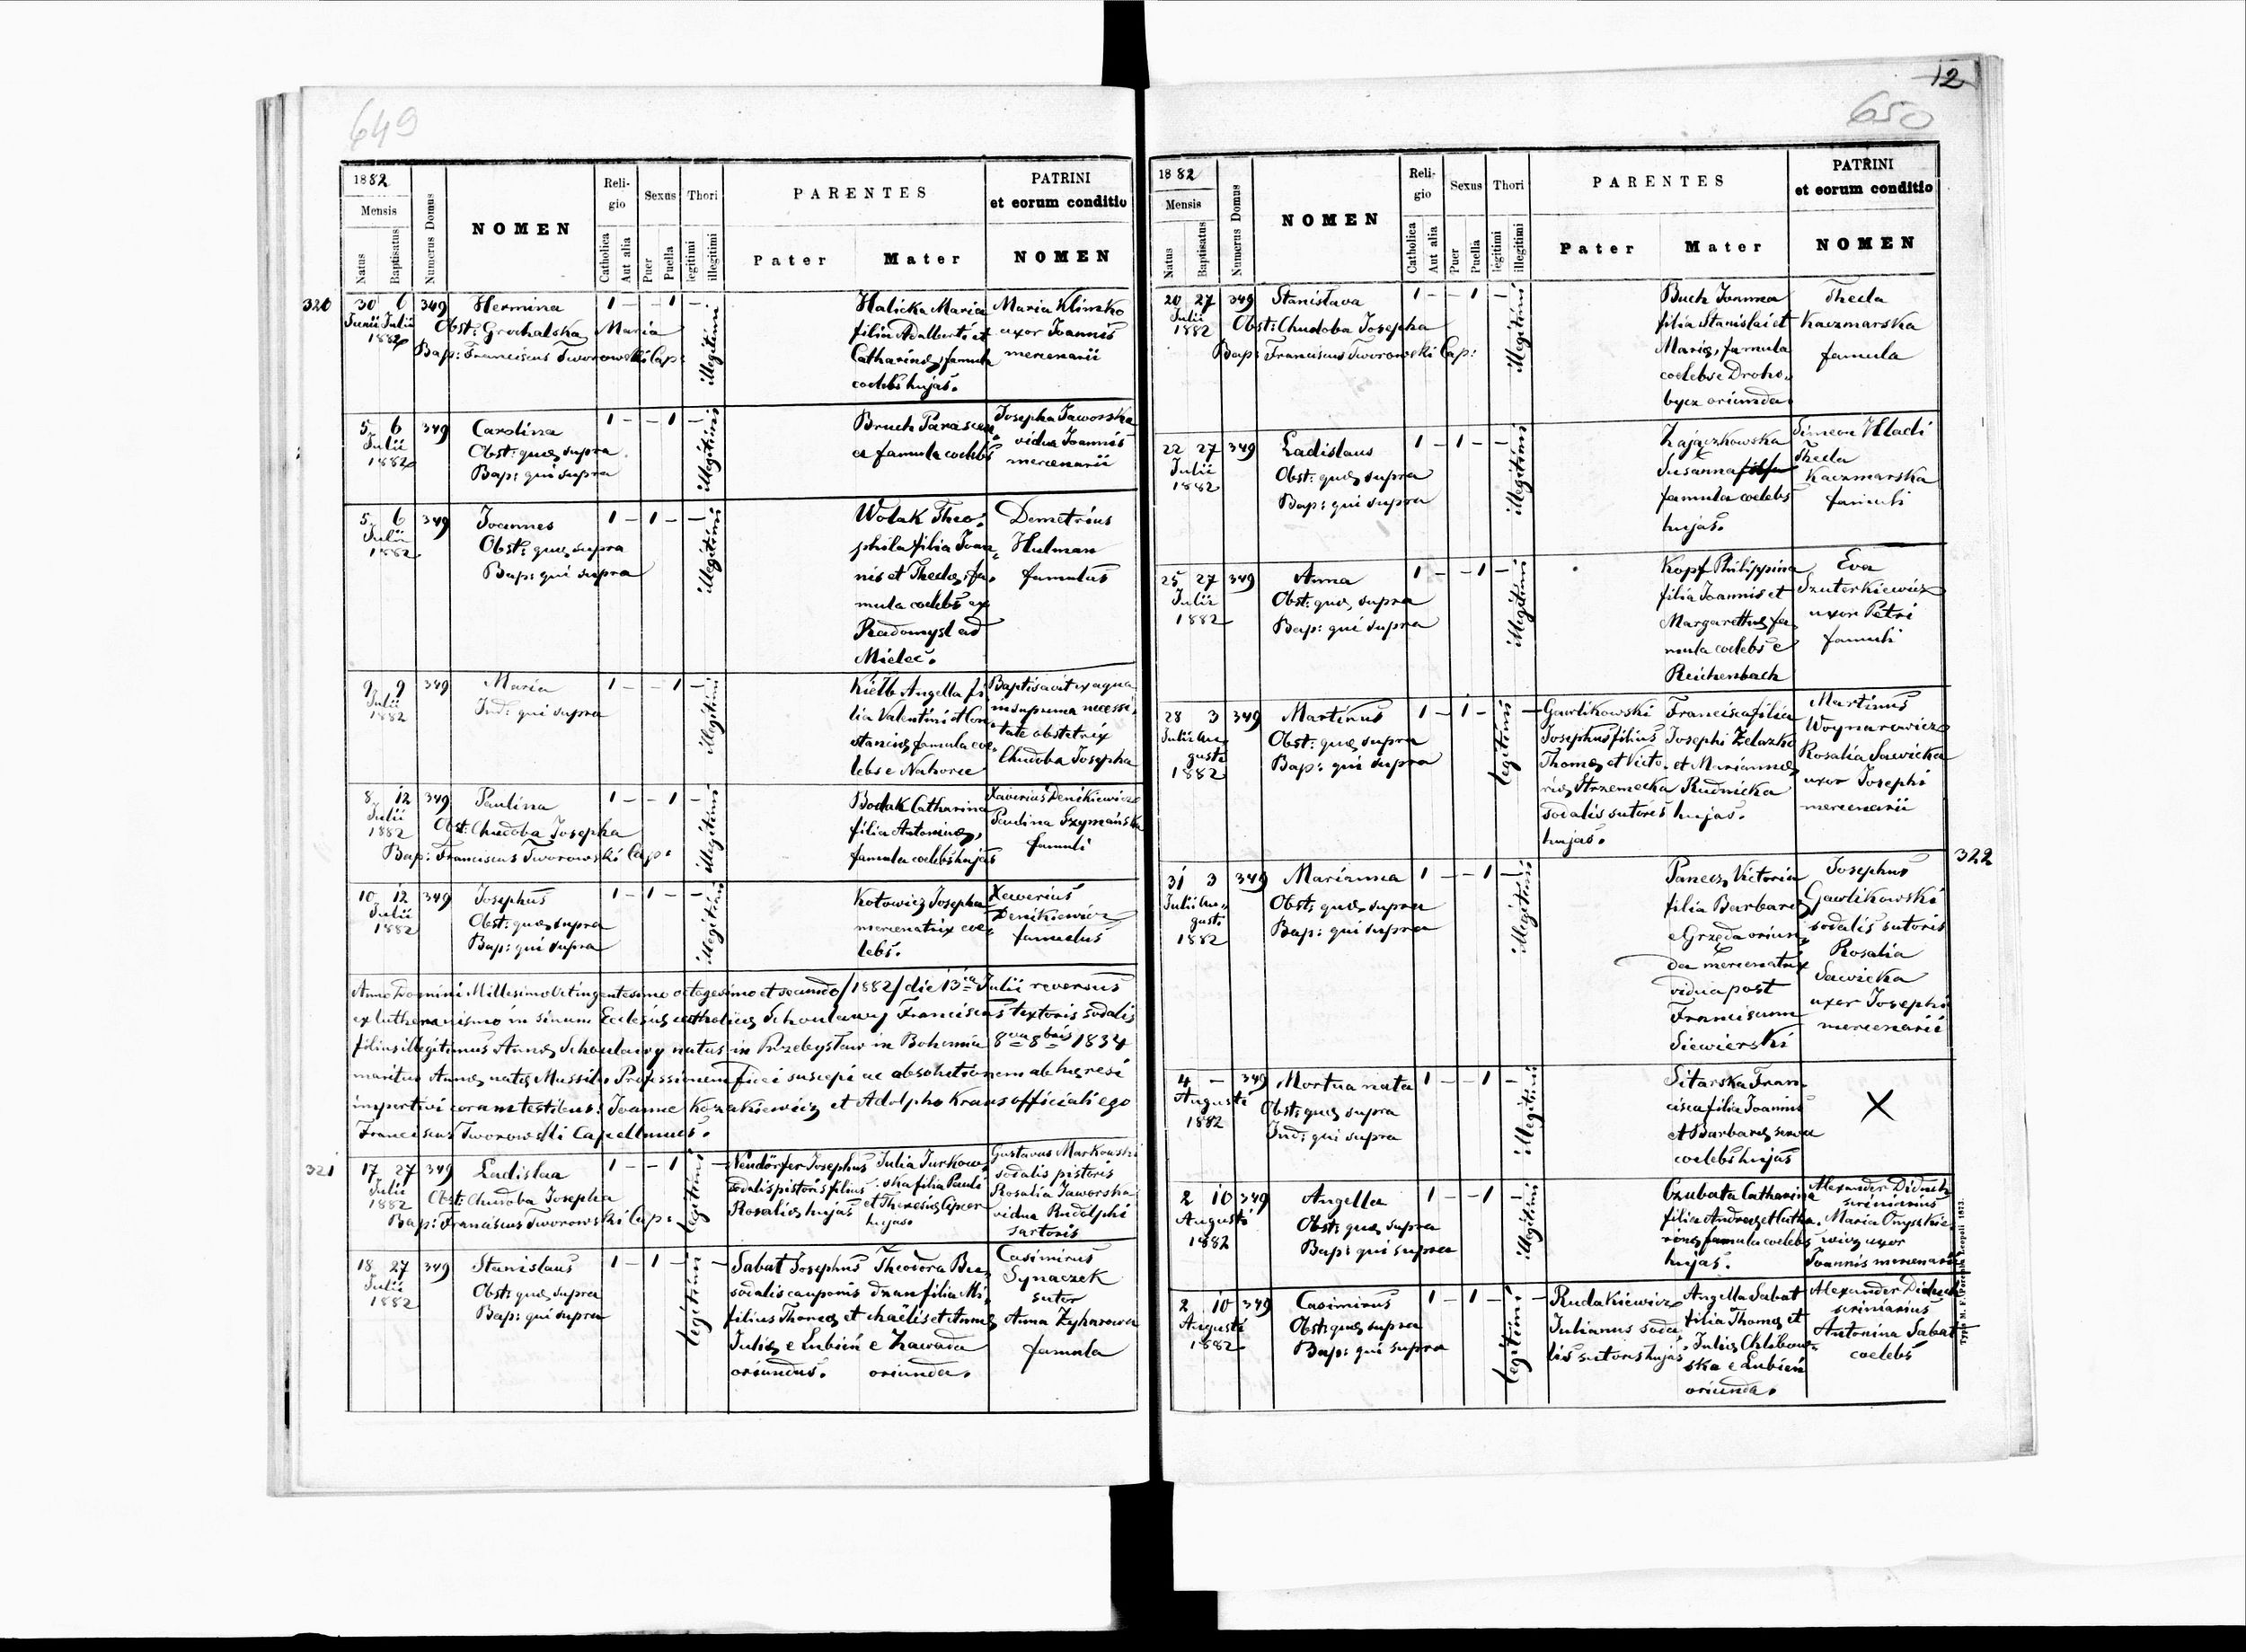 12
649
650
1882
Mensis
Natus
Baptisatus
Numerus Domus
NOMEN
Religio
Catholica
Aut alia
Sexus
Puer
Puella
Thori
legitimi
illegitimi
PARENTES
Pater
Mater
PATRINI
et eorum conditio
NOMEN
320
30 6 349 Hermina 1 – – 1 –
Junii Julii
1882
Obst: Grochalska Maria
Bap: Franciscus Tworowski Cap:
illegitimi
Halicka Maria
filia Adalberti et
Catharinæ, famula
coelebs hujas.
Maria Klimko
uxor Joannis
mercenarii
5 6 349 Carolina 1 – – 1 –
Julii
1882
Obst: quæ supra
Bap: qui supra
illegitimi
Bruch Parasceu
a famula coelebs
Josepha Jaworska
vidua Joannis
mercenarii
5 6 349 Joannes 1 – 1 – –
Julii
1882
Obst: quæ supra
Bap: qui supra
illegitimi
Wolak Theo-
phila filia Joan-
nis et Theclæ, fa-
mula coelebs ex
Radomysl ad
Mielec.
Demetrius
Hulman
famulus
9 9 349 Maria 1 – – 1 –
Julii
1882
Ind: qui supra
illegitimi
Kiełb Angella fi
lia Valentini et Con-
stanciæ famula coe-
lebs e Nahorce
Baptisavit ex aqua
in suprema necessi-
tate obstetrix
Chudoba Josepha
8 12 349 Paulina 1 – – 1 –
Julii
1882
Obst: Chudoba Josepha
Bap: Franciscus Tworowski Cap:
illegitimi
Bodak Catharina
filia Antoninæ,
famula coelebs hujas
Xaverius Denikiewicz
Paulina Szymańska
famuli
10 12 349 Josephus 1 – 1 – –
Julii
1882
Obst: quæ supra
Bap: qui supra
illegitimi
Kotowicz Josepha
mercenatrix coe-
lebs.
Xaverius
Denikiewicz
famulus
Anno Domini Millesimo Octingentesimo octogesimo et secundo /1882/ die 13ia Julii reversus
ex lutheranismo in sinum Ecclesiæ catholicæ Schoulawy Franciscus textoris sodalis
filius illegitimus Annæ Schoulawy natus in Przebysław in Bohemia 8va 8bris 1834
maritus Annæ natæ Mussil. Professionem fidei suscepi ac absolutionem ab hæresi
impertivi coram testibus: Joanne Kozakiewicz et Adolpho Kraus officiali ego
Franciscus Tworowski Capellanus.
321
17 27 349 Ladislaa 1 – – 1 –
Julii
1882
Obst: Chudoba Josepha
Bap: Franciscus Tworowski Cap:
legitimi
Neudörfer Josephus
sodalis pistoris filius
Rosaliæ hujas
Julia Jurkow-
ska filia Pauli
et Theresiæ
hujas.
Gustavus Markowski
sodalis pistoris
Rosalia Jaworska
vidua Rudolphi
sartoris
18 27 349 Stanislaus 1 – 1 – –
Julii
1882
Obst: quæ supra
Bap: qui supra
legitimi
Sabat Josephus
sodalis cauponis
filius Thomæ et
Juliæ e Lubień
oriundus.
Theodora Bu-
dzan filia Mi-
chaëlis et Annæ
e Zawada
oriunda.
Casimirus
Synaczek
sutor
Anna Zyharowa
famula
1882
Mensis
Natus
Baptisatus
Numerus Domus
NOMEN
Religio
Catholica
Aut alia
Sexus
Puer
Puella
Thori
legitimi
illegitimi
PARENTES
Pater
Mater
PATRINI
et eorum conditio
NOMEN
20 27 349 Stanislava 1 – – 1 –
Julii
1882
Obst: Chudoba Josepha
Bap: Franciscus Tworowski Cap:
illegitimi
Buch Joanna
filia Stanislai et
Mariæ, famula
coelebs e Droho-
bycz oriunda.
Thecla
Kaczmarska
famula
22 27 349 Ladislaus 1 – 1 – –
Julii
1882
Obst: quæ supra
Bap: qui supra
illegitimi
Zajączkowska
Susanna filia
famula coelebs
hujas.
Simeon Hladi
Thecla
Kaczmarska
famuli
25 27 349 Anna 1 – – 1 –
Julii
1882
Obst: quæ supra
Bap: qui supra
illegitimi
Kopf Philippina
filia Joannis et
Margarethæ fa
mula coelebs e
Reichenbach
Eva
Szuterkiewicz
uxor Petri
famuli
28 3 349 Martinus 1 – 1 – –
Julii Au-
gusti
1882
Obst: quæ supra
Bap: qui supra
legitimi
Gawlikowski
Josephus filius
Thomæ et Victo-
riæ Strzemecka
sodalis sutoris
hujas.
Francisca filia
Josephi Zelazko
et Mariannæ
Rudnicka
hujas.
Martinus
Woynarowicz
Rosalia Sawicka
uxor Josephi
mercenarii
322
31 3 349 Marianna 1 – – 1 –
Julii Au-
gust.
1882
Obst: quæ supra
Bap: qui supra
illegitimi
Panecz Victoria
filia Barbaræ
e Grzęda oriun-
da mercenatrix
vidua post
Franciscum
Siewierski
Josephus
Gawlikowski
sodalis sutoris
Rosalia
Sawicka
uxor Josephi
mercenarii
4 – 349 Mortua nata 1 – – 1 –
Augusti
1882
Obst: quæ supra
Ind: qui supra
illegitimi
Sitarska Fran-
cisca filia Joannis
et Barbaræ serva
coelebs hujas
X
2 10 349 Angella 1 – – 1 –
Augusti
1882
Obst: quæ supra
Bap: qui supra
illegitimi
Czubata Catharina
filia Andreæ et Catha-
rinæ famula coelebs
hujas.
Alexander Diduch
scriniarius
Maria Onyszkie-
wicz uxor
Joannis mercenarii
2 10 349 Casimirus 1 – 1 – –
Augusti
1882
Obst: quæ supra
Bap: qui supra
legitimi
Rudakiewicz
Julianus soda-
lis sutoris hujas
Angella Sabat
filia Thomæ et
Juliæ Chlibow-
ska e Lubień
oriunda.
Alexander Diduch
scriniarius
Antonina Sabat
coelebs